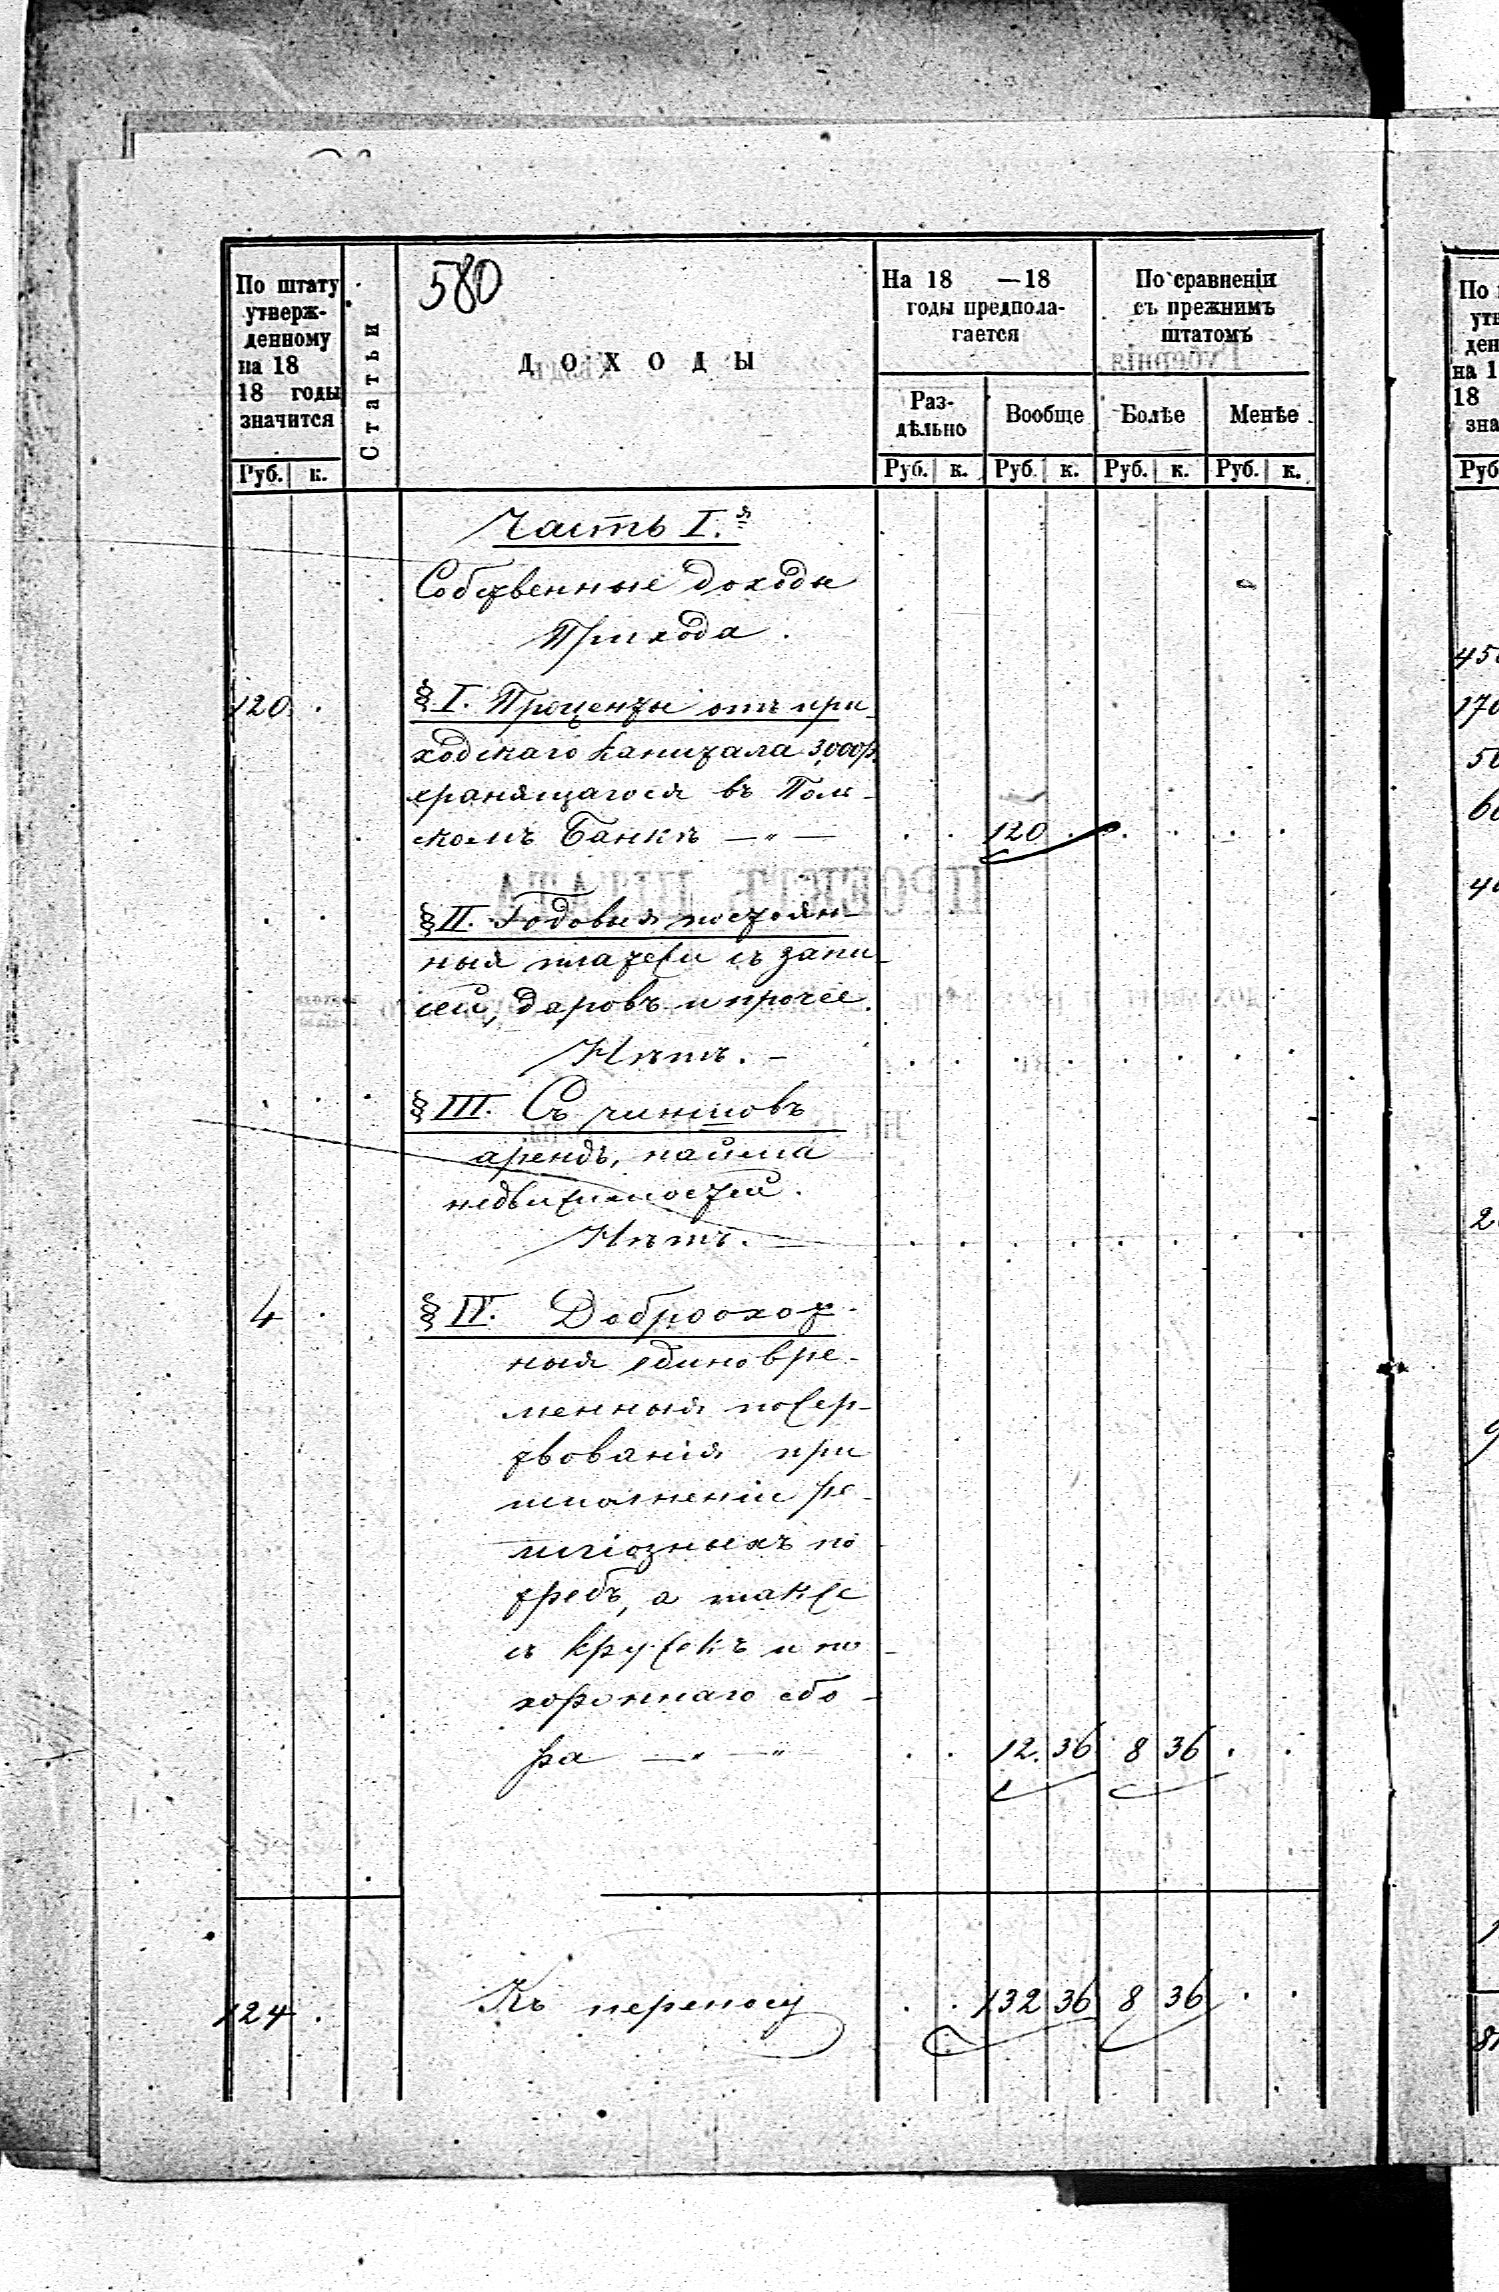 580
По штату
утверж-
денному
на 18
18 годы
значится
Руб. к.
Статьи
ДОХОДЫ
На 18 —18
годы предпола-
гается
Раз-
дѣльно
Вообще
Руб. к. Руб. к.
По сравненіи
съ прежнимъ
штатомъ
Болѣе
Менѣе
Руб. к. Руб. к.
Часть I.я
Собственные доходы
Прихода.
120. § I. Проценты отъ при-
ходскаго капитала 3000 р.
хранящагося въ Поль-
скомъ Банкѣ — " — 120
§ II. Годовыя постоян-
ныя платежи съ запи-
сей, даровъ и прочее.
Нѣтъ. —
§ III. Съ чиншовъ
арендъ, найма
недвижимостей.
Нѣтъ. —
4 § IV. Доброохот-
ныя единовре-
менныя пожер-
твованія при
исполненіи ре-
лигіозныхъ по-
требъ, а также
съ кружекъ и по-
хороннаго сбо-
ра — " — " 12. 36 8 36
124 Къ переносу 132 36 8 36